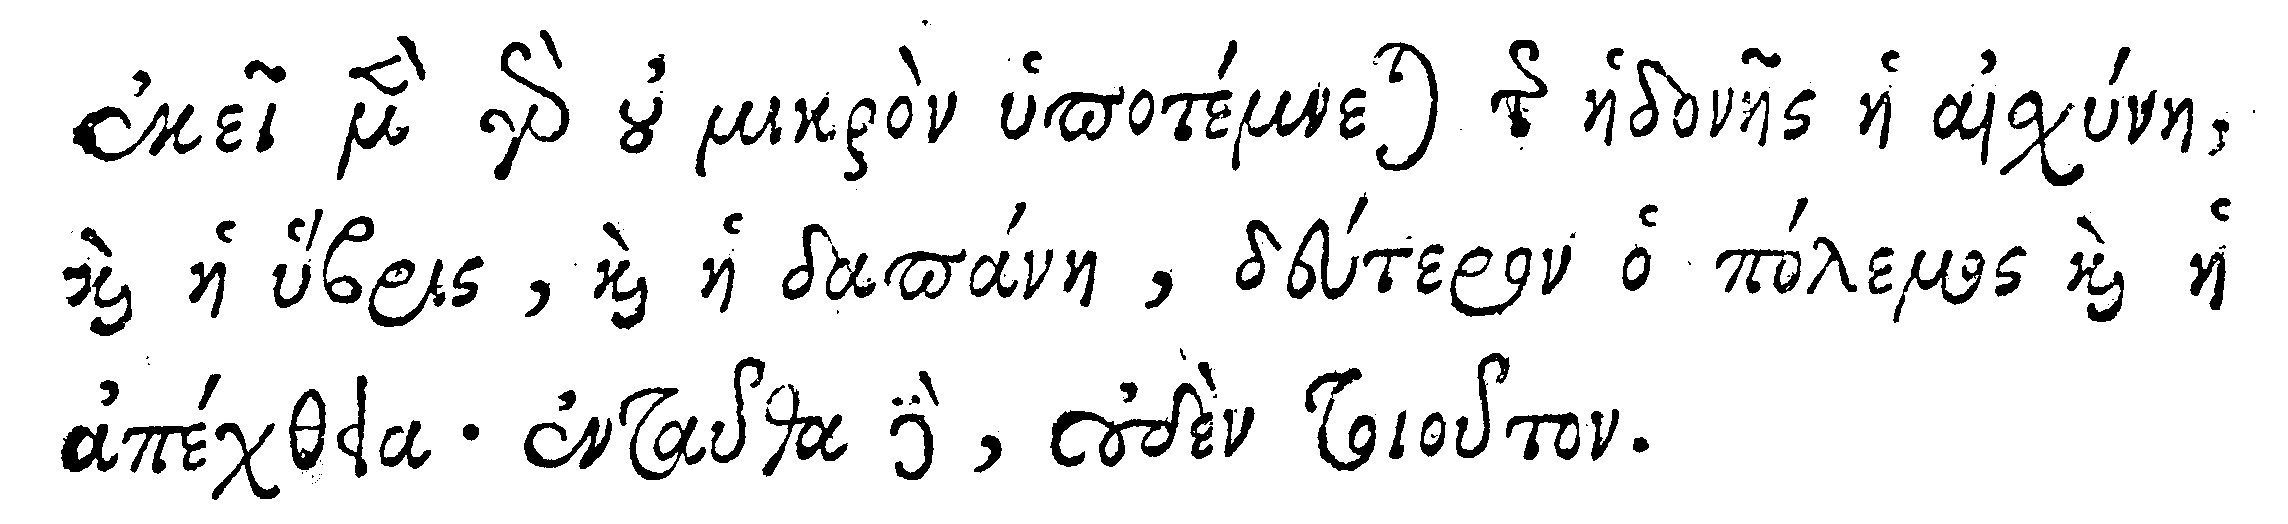 ἐκεῖ μὲν γὰρ οὐ μικρὸν ὑποτέμνεται τῆς ἡδονῆς ἡ αἰσχύνη,
καὶ ἡ ὕβρις, καὶ ἡ δαπάνη, δεύτερον ὁ πόλεμος καὶ ἡ
ἀπέχθεια. ἐνταῦθα δὲ, οὐδὲν τοιοῦτον.